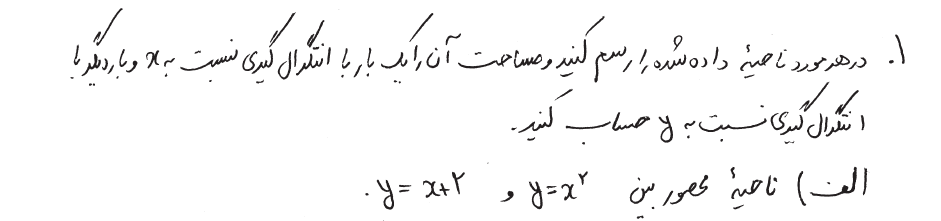 ۱. در هر مورد ناحیهٔ داده شده را رسم کنید و مساحت آن را یک بار با انتگرال گیری نسبت به x و بار دیگر با
انتگرال گیری نسبت به y حساب کنید.
الف) ناحیهٔ محصور بین y = x^۲ و y = x+۲.